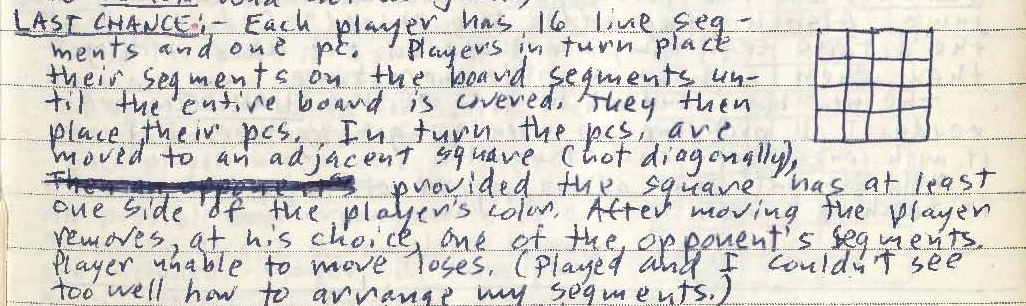 LAST CHANCE:- Each player has 16 line seg-
ments and one pc. Players in turn place
their segments on the board segments un-
til the entire board is covered. They then
place their pcs. In turn the pcs. are
moved to an adjacent square (not diagonally),
provided the square has at least
one side of the player's color. After moving the player
removes, at his choice, one of the opponent's segments.
Player unable to move loses. (Played and I couldn't see
too well how to arrange my segments.)